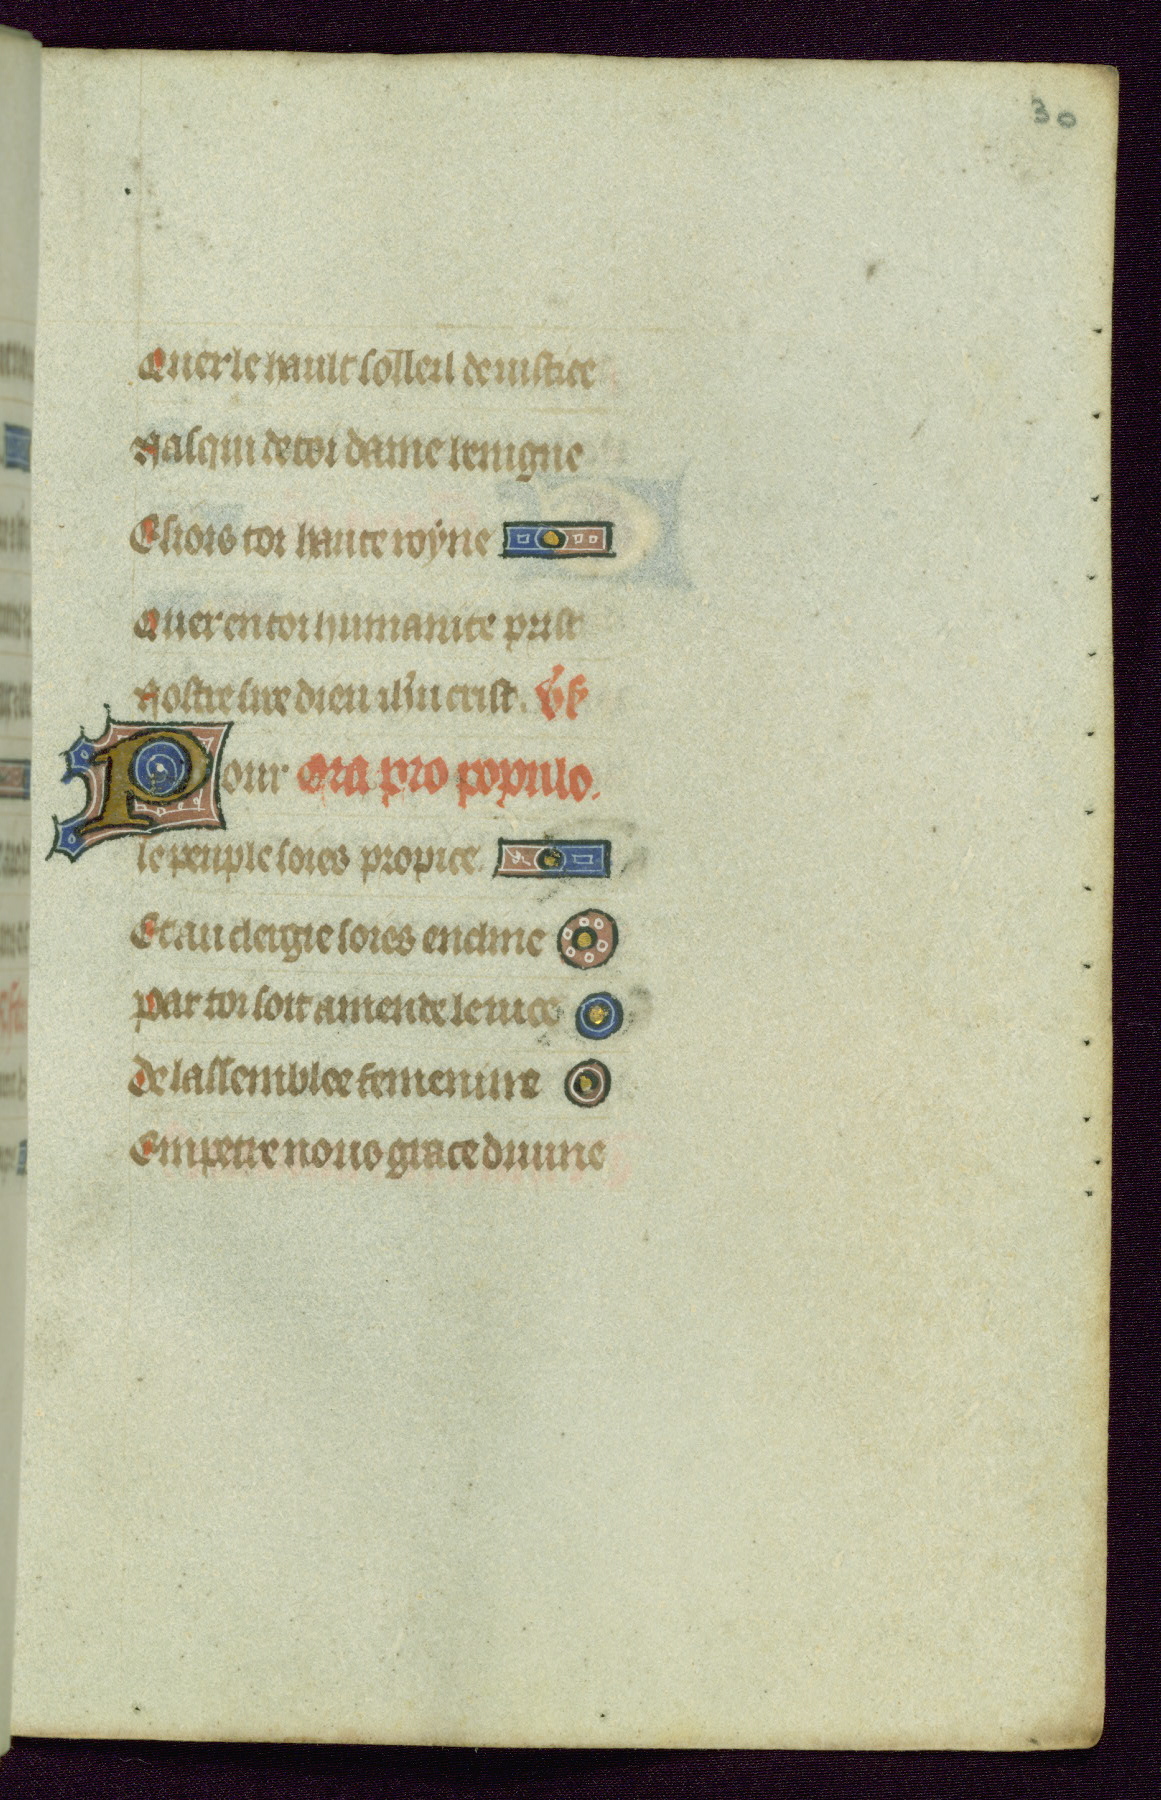 30
Quer le hault solleil de iustice
Nasqui de toi dame benigne
Esiois toi haute royne
Quer en toi humanite prist
Nostre sire dieu ihu crist. Vs
Pour Ora pro populo.
le peuple soies propice
Et au clergie soies encline
Par toi soit amende le vice
De lassemblee femenine
Empetre nous grace diuine